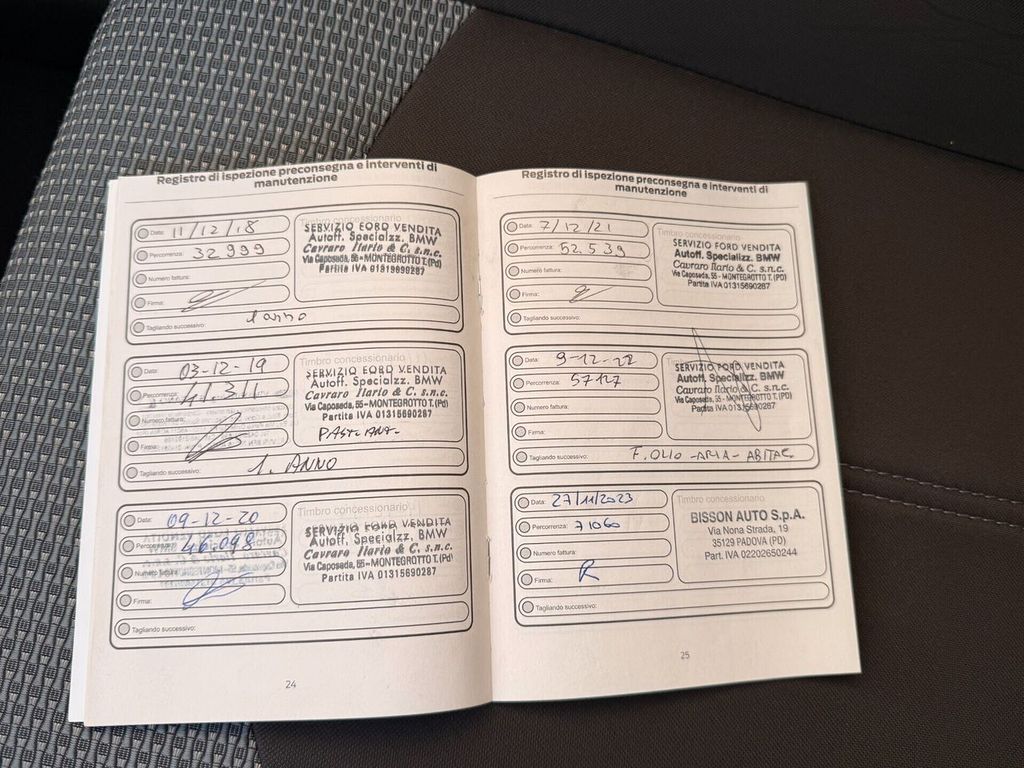 Registro di ispezione preconsegna e interventi di
manutenzione
Data: 11/12/18
Percorrenza: 32999
Numero fattura:
Firma:
Tagliando successivo: 1 anno
Timbro concessionario
SERVIZIO FORD VENDITA
Autoff. Specializz. BMW
Cavraro Ilario & C. s.n.c.
Via Caposeda, 55 - MONTEGROTTO T. (Pd)
Partita IVA 01315690287
Data: 03-12-19
Percorrenza: 41.311
Numero fattura:
Firma:
Tagliando successivo: 1. ANNO
Timbro concessionario
SERVIZIO FORD VENDITA
Autoff. Specializz. BMW
Cavraro Ilario & C. s.n.c.
Via Caposeda, 55 - MONTEGROTTO T. (Pd)
Partita IVA 01315690287
Data: 09-12-20
Percorrenza: 46.098
Numero fattura:
Firma:
Tagliando successivo:
Timbro concessionario
SERVIZIO FORD VENDITA
Autoff. Specializz. BMW
Cavraro Ilario & C. s.n.c.
Via Caposeda, 55 - MONTEGROTTO T. (Pd)
Partita IVA 01315690287
24
Registro di ispezione preconsegna e interventi di
manutenzione
Data: 7/12/21
Percorrenza: 52.539
Numero fattura:
Firma:
Tagliando successivo:
SERVIZIO FORD VENDITA
Autoff. Specializz. BMW
Cavraro Ilario & C. s.n.c.
Via Caposeda, 55 - MONTEGROTTO T. (Pd)
Partita IVA 01315690287
Data: 9-12-22
Percorrenza: 57127
Numero fattura:
Firma:
Tagliando successivo: F. OLIO - ARIA - ABITAC
SERVIZIO FORD VENDITA
Autoff. Specializz. BMW
Cavraro Ilario & C. s.n.c.
Via Caposeda, 55 - MONTEGROTTO T. (Pd)
Partita IVA 01315690287
Data: 27/11/2023
Percorrenza: 71060
Numero fattura:
Firma: R
Tagliando successivo:
Timbro concessionario
BISSON AUTO S.p.A.
Via Nona Strada, 19
35129 PADOVA (PD)
Part. IVA 02202650244
25